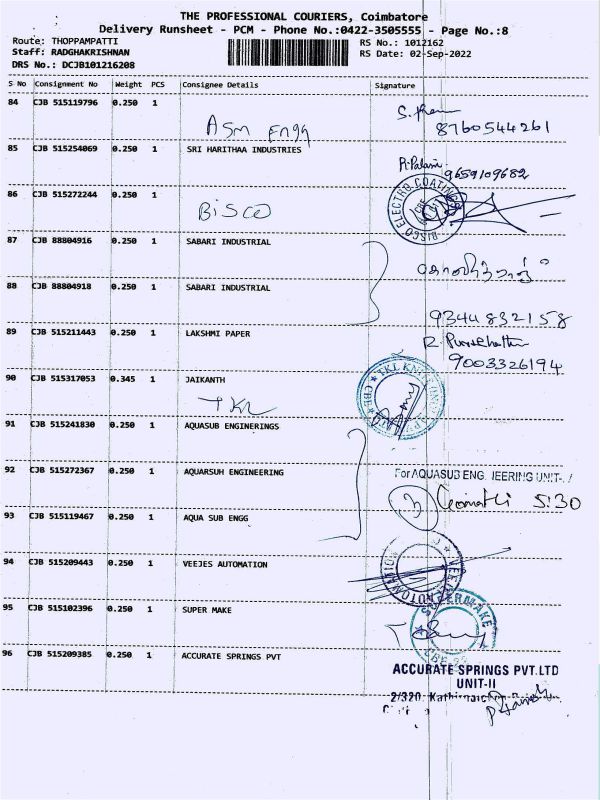 THE PROFESSIONAL COURIERS, Coimbatore
Delivery Runsheet - PCM - Phone No.:0422-3505555 - Page No.:8
Route: THOPPAMPATTI
Staff: RADGHAKRISHNAN
DRS No.: DCJB101216208
RS No.: 1012162
RS Date: 02-Sep-2022
S No Consignment No Weight PCS Consignee Details Signature
84 CJB 515119796 0.250 1
ASM Engg
8760544261
85 CJB 515254069 0.250 1 SRI HARITHAA INDUSTRIES
R.Palani
9659109682
86 CJB 515272244 0.250 1
BISCO
BISCO ELECTRO COATINGS
CBE
87 CJB 88804916 0.250 1 SABARI INDUSTRIAL
88 CJB 88804918 0.250 1 SABARI INDUSTRIAL
9344832158
89 CJB 515211443 0.250 1 LAKSHMI PAPER
9003326194
90 CJB 515317053 0.345 1 JAIKANTH
TKL
TKL KNIT
CBE
91 CJB 515241830 0.250 1 AQUASUB ENGINERINGS
92 CJB 515272367 0.250 1 AQUARSUH ENGINEERING
For AQUASUB ENG. IEERING UNIT-
5:30
93 CJB 515119467 0.250 1 AQUA SUB ENGG
94 CJB 515209443 0.250 1 VEEJES AUTOMATION
95 CJB 515102396 0.250 1 SUPER MAKE
96 CJB 515209385 0.250 1 ACCURATE SPRINGS PVT
ACCURATE SPRINGS PVT.LTD
UNIT-II
2/320,